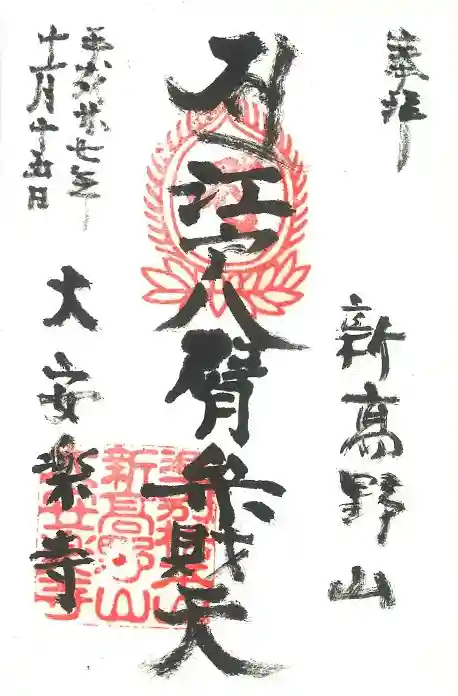 奉拝
新高野山
江戸八臂弁財天
平成廿七年
十一月十五日
大安楽寺
新高野山